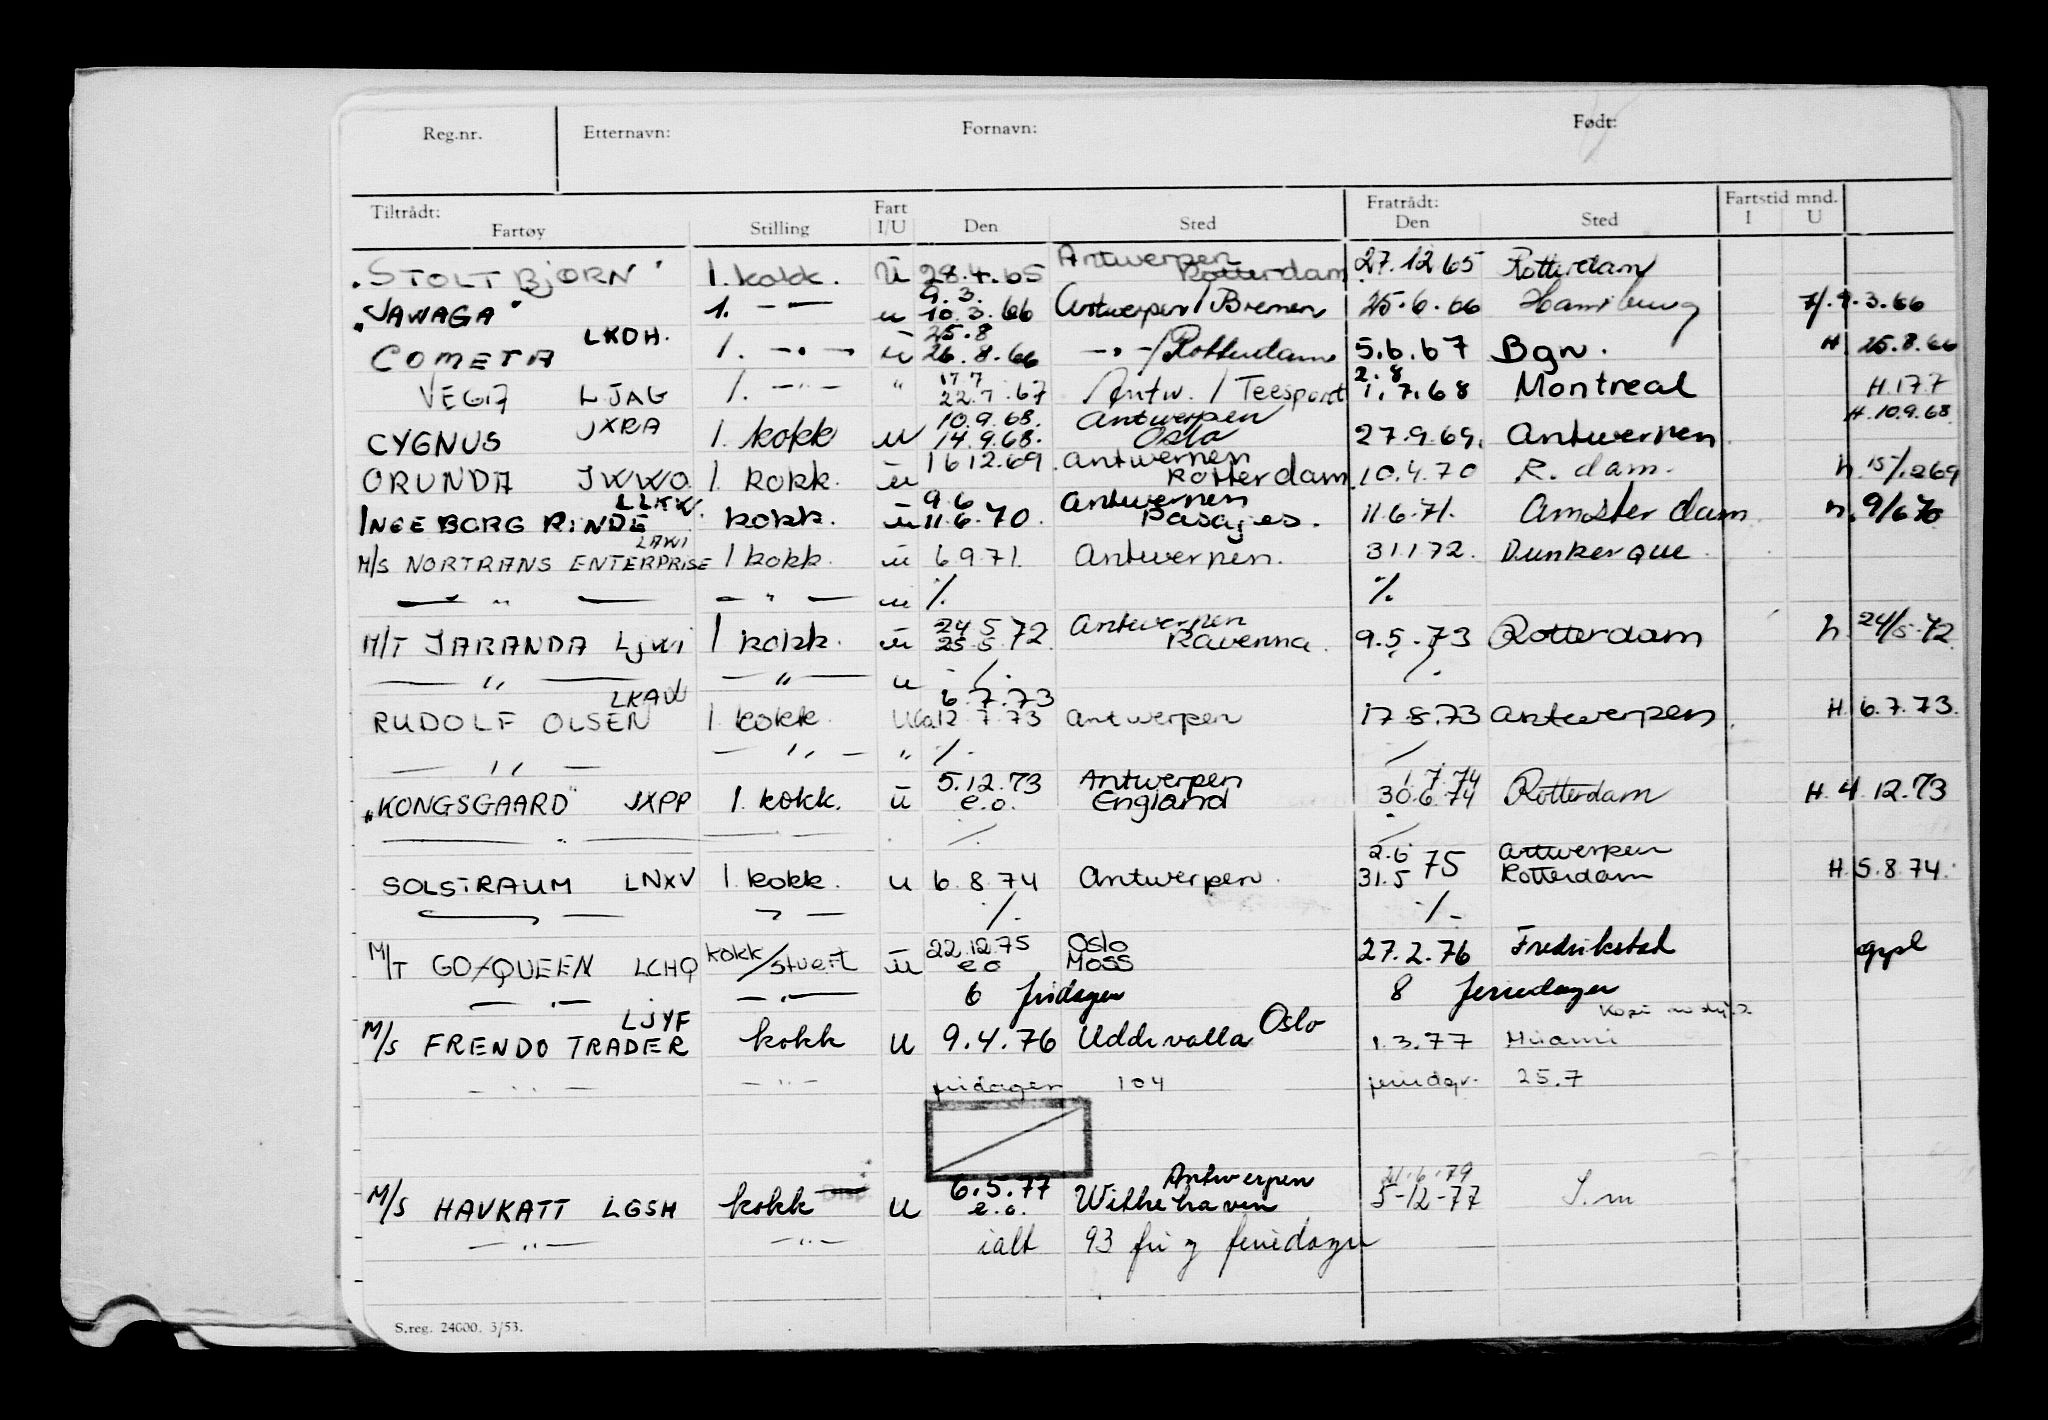 Reg.nr. Etternavn: Fornavn: Født:
Tiltrådt: Fart Fratrådt: Fartstid mnd.
Fartøy Stilling I/U Den Sted Den Sted I U
"STOLT BJØRN" 1. kokk. U 28.4.65 Antwerpen Rotterdam 27.12 65 Rotterdam
"JAWAGA" 1. — " — u 9.3. 10.3.66 Antwerpen/Bremen 25.6.66 Hamburg 7/. 9.3.66
COMETA LKDH. 1. — " — u 25.8 26.8.66 — " —/Rotterdam 5.6.67 Bgn. H 25.8.66
VEGA LJAG 1. — " — " 17.7 22.7.67 Antw. / Teesport 2.8 1.7.68 Montreal H.17.7
CYGNUS JXRA 1. kokk u 10.9.68. 14.9.68. Antwerpen Oslo 27.9.69. Antwerpen H.10.9.68
ORUNDA JWWO 1. kokk. u 16 12.69. Antwerpen Rotterdam 10.4.70 R.dam. h. 15/12 69
INGEBORG RINDE LLKW. kokk. u 9 6 11.6.70. Antwerpen Pasajes. 11.6.71. Amsterdam h. 9/6 70
M/S NORTRANS ENTERPRISE LAWI 1 kokk. u 6 9 71. Antwerpen. 31.1 72. Dunkerque.
— " — — " — u ./. ./.
M/T JARANDA LJWI 1 kokk. u 24 5 25 5 72. Antwerpen Ravenna. 9.5.73 Rotterdam h. 24/5.72
— " — — " — u ./. ./.
RUDOLF OLSEN LKAW 1. kokk. U 6.7.73 12 7.73 Antwerpen 17.8.73 Antwerpen. H. 6.7.73.
— " — — " — " ./. ./.
"KONGSGAARD" JXPP 1. kokk. u 5.12.73 e.o. Antwerpen England 1.7.74 30.6.74 Rotterdam H. 4.12.73
— " — ./. ./.
SOLSTRAUM LNXV 1. kokk. u 6.8.74 Antwerpen. 2.6 31.5 75 Antwerpen Rotterdam H. 5.8.74.
— " — — " — ./. ./.
M/T GO-QUEEN LCHQ kokk/stuert u 22.12.75 e.o Oslo Moss 27.2.76 Fredrikstad oppl
— " — — " — 6 fridager 8 feriedager
M/S FRENDO TRADER LJYF kokk u 9.4.76 Uddevalla Oslo 1.3.77 Miami
— " — — " — fridager 104 feriedgr. 25.7
M/S HAVKATT LGSH kokk u 6.5.77 e.o. Antwerpen Wilhehaven 21.6.79 5-12-77 S.m
— " — — " — ialt 93 fri og feriedager
S.reg. 24000. 3/53.